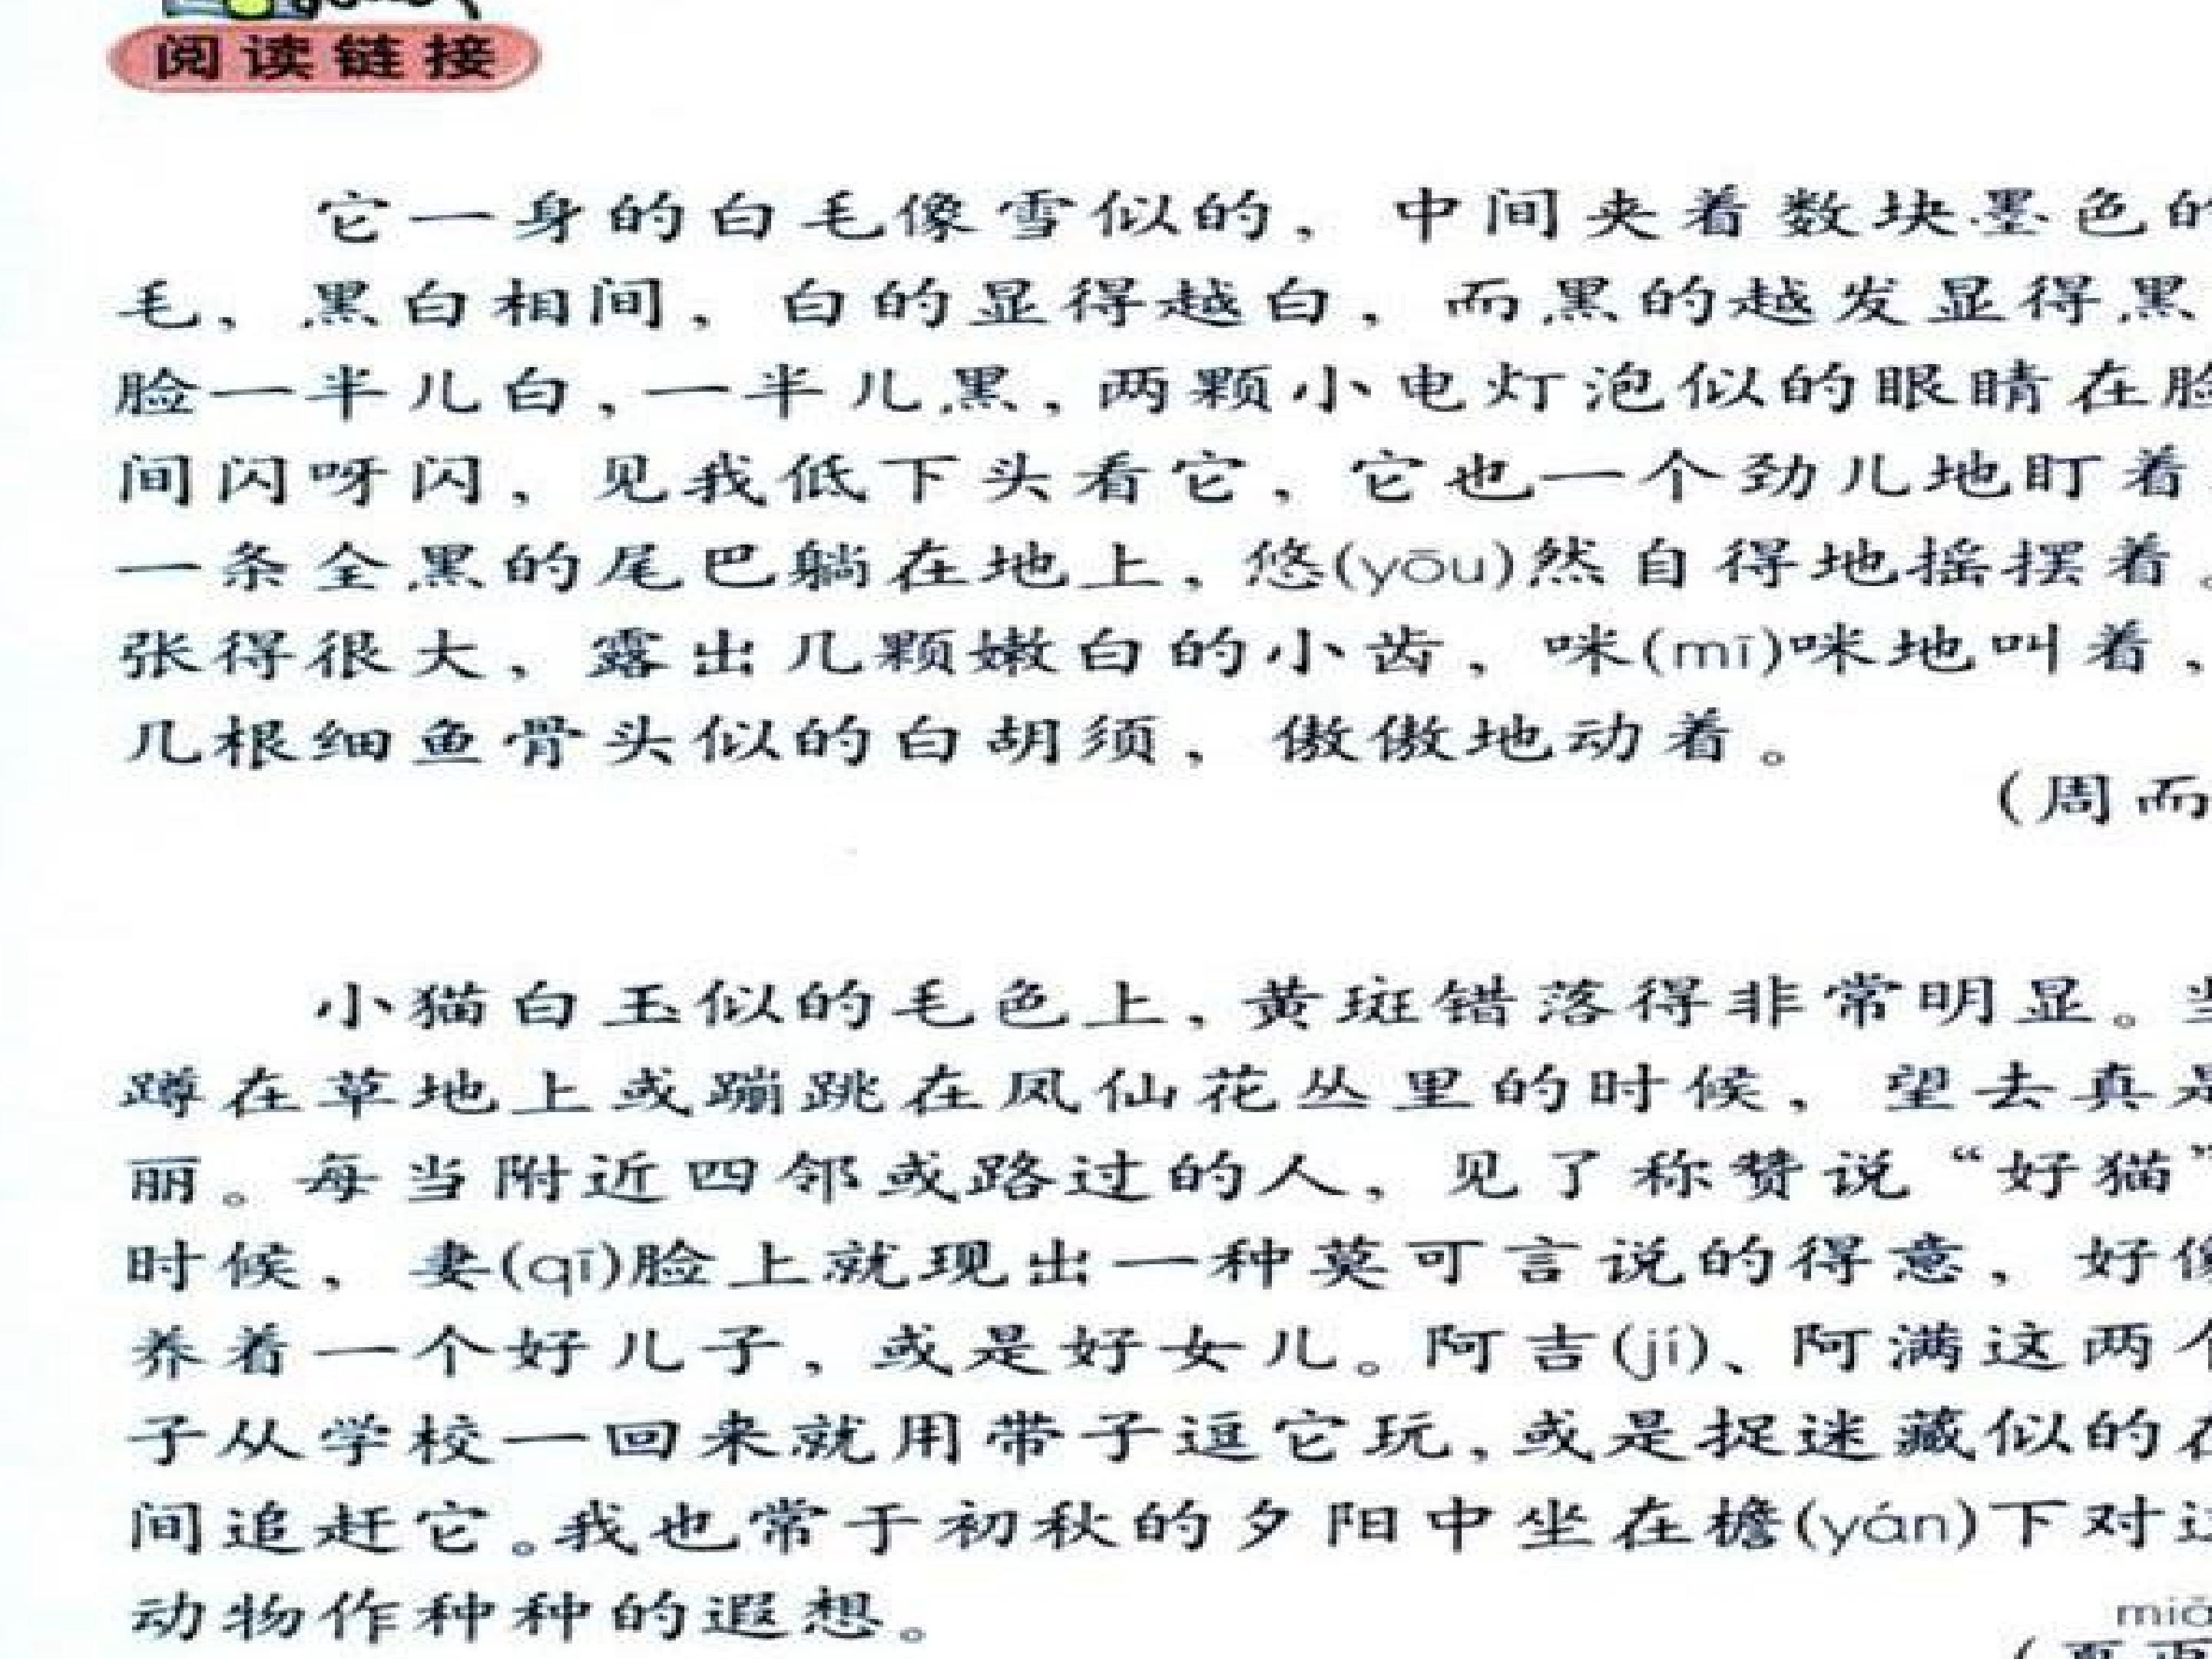 阅读链接
它一身的白毛像雪似的，中间夹着数块墨色的
毛，黑白相间，白的显得越白，而黑的越发显得黑
脸一半儿白，一半儿黑，两颗小电灯泡似的眼睛在脸
间闪呀闪，见我低下头看它，它也一个劲儿地盯着
一条全黑的尾巴躺在地上，悠(yōu)然自得地摇摆着。
张得很大，露出几颗嫩白的小齿，咪(mī)咪地叫着，
几根细鱼骨头似的白胡须，傲傲地动着。
(周而
小猫白玉似的毛色上，黄斑错落得非常明显。当
蹲在草地上或蹦跳在凤仙花丛里的时候，望去真是
丽。每当附近四邻或路过的人，见了称赞说“好猫”
时候，妻(qī)脸上就现出一种莫可言说的得意，好像
养着一个好儿子，或是好女儿。阿吉(jí)、阿满这两个
子从学校一回来就用带子逗它玩，或是捉迷藏似的在
间追赶它。我也常于初秋的夕阳中坐在檐(yán)下对这
动物作种种的遐想。